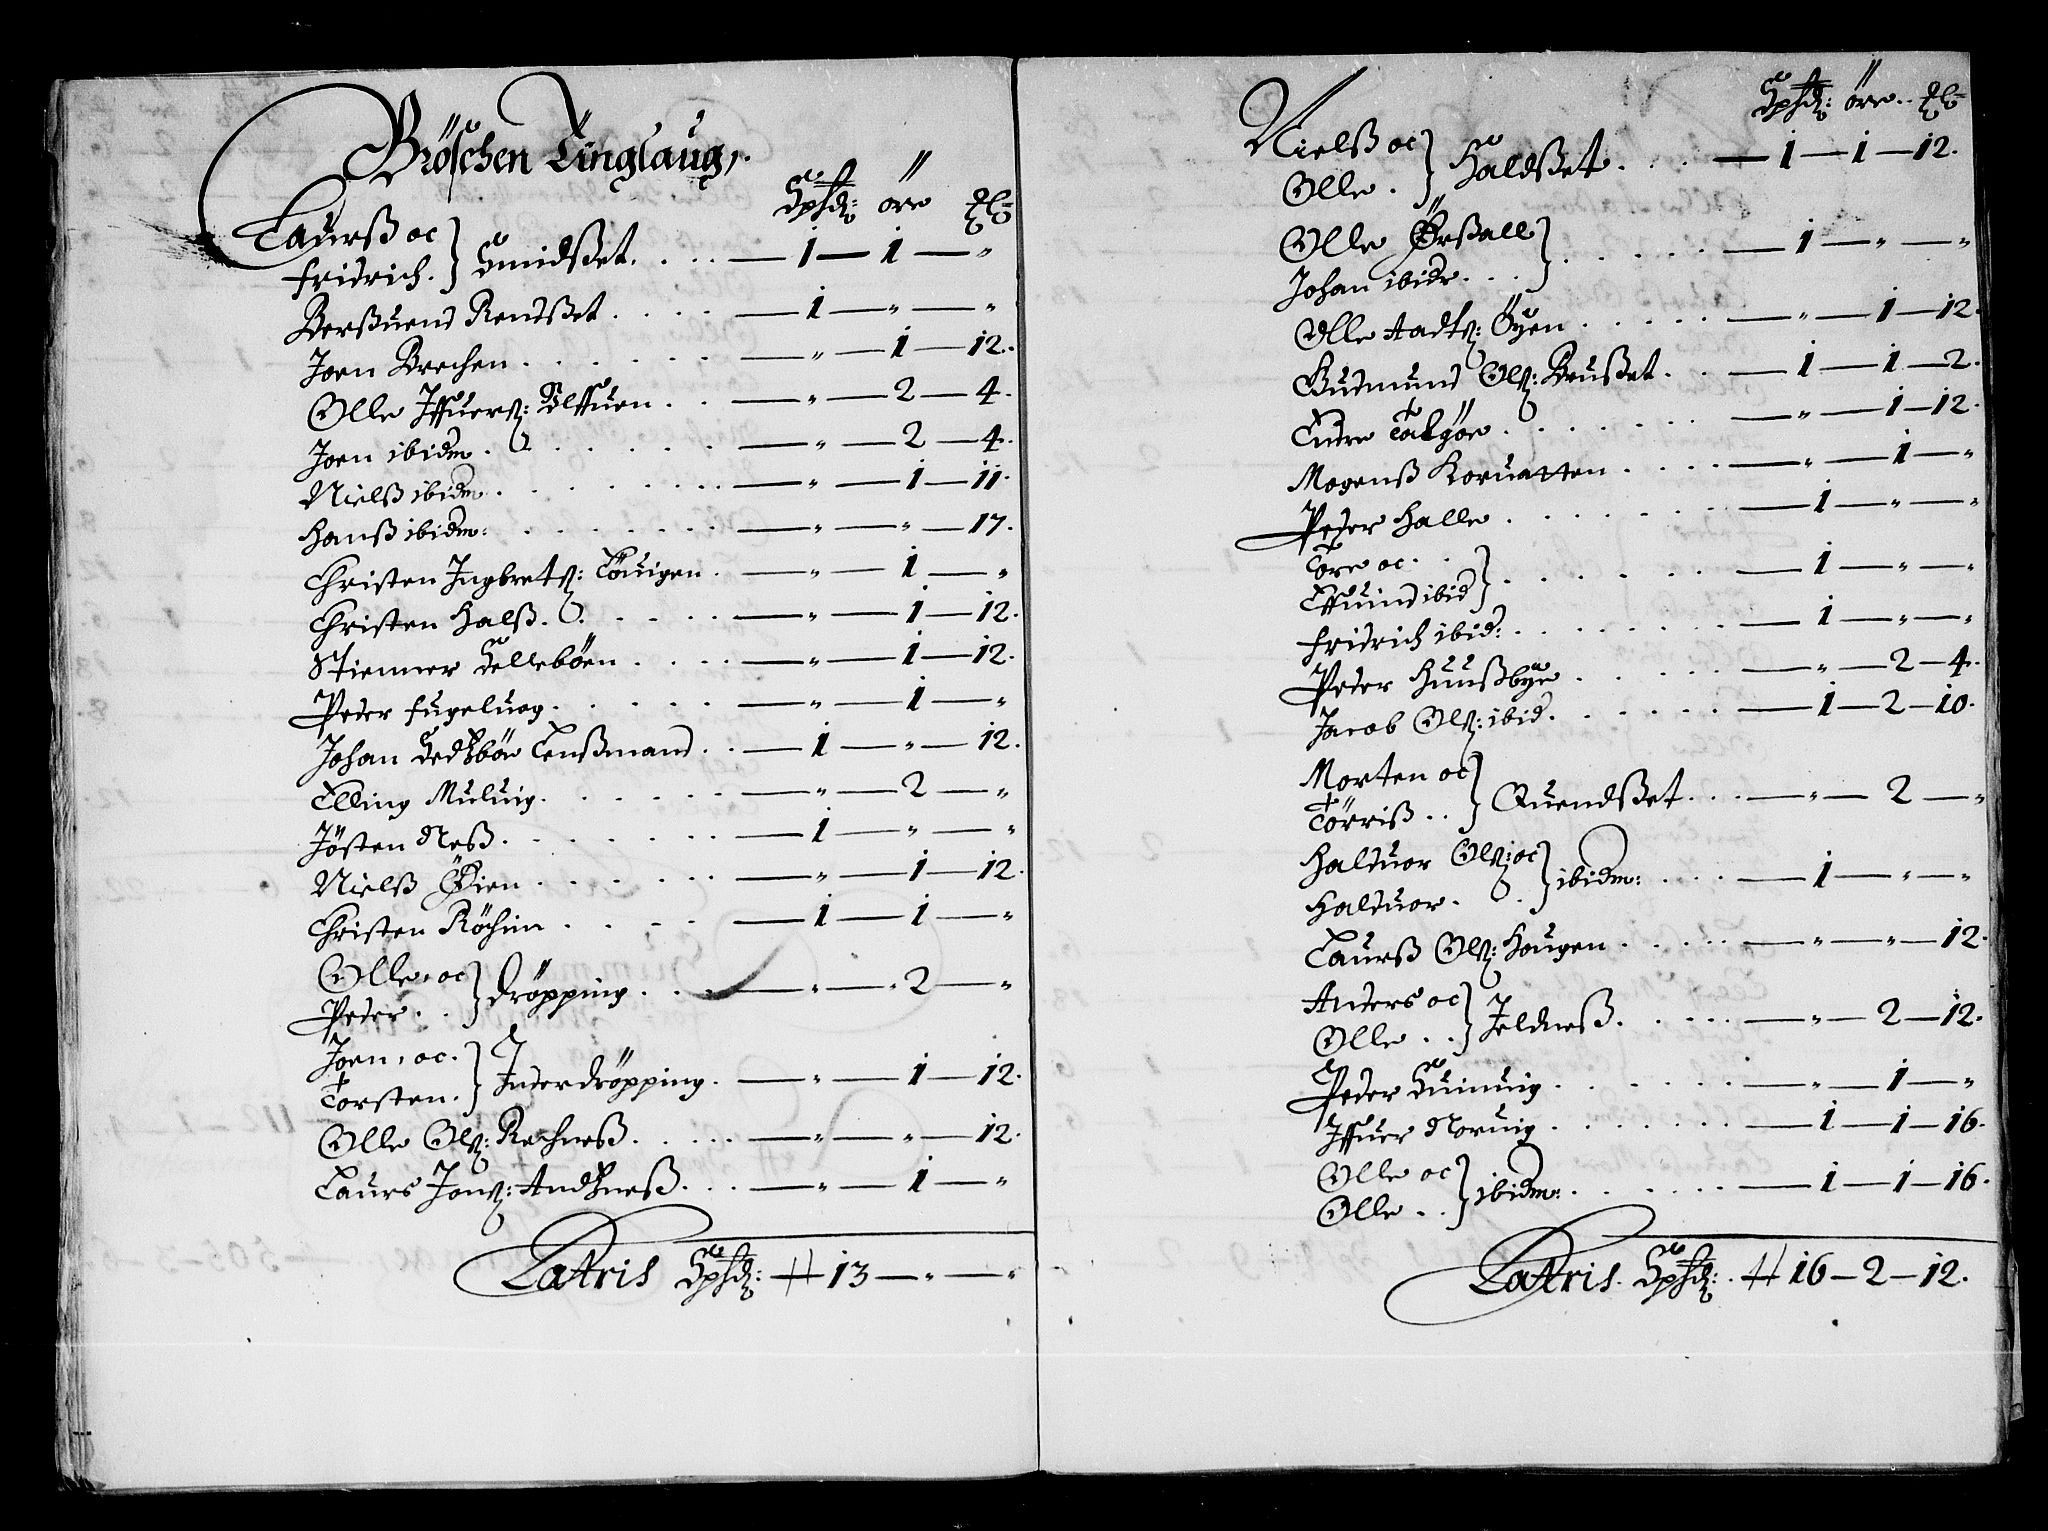 Bröschen Tinglaug,.
Spdr: öre
Laurß oc
Fridrich. } Smidßet. — 1 — 1 — "
Berßuend Rendßet. — 1 — " — "
Joen Brechen. — " — 1 — 12.
Olle Jffuerß: Elffuen. — " — 2 — 4.
Joen ibidm. — " — 2 — 4.
Nielß ibidm. — " — 1 — 11.
Hanß ibidm: — " — " — 17.
Christen Ingbretß: Töuigen. — " — 1 — "
Christen Halß. — " — 1 — 12.
Stienner Selleböen. — " — 1 — 12.
Peder Fugeluog. — " — 1 — "
Johan Sedtzböe Lenßmand. — 1 — " — 12.
Elling Muluig. — " — 2 — "
Jösten Neß. — 1 — " — "
Nielß Øien. — " — 1 — 12.
Christen Röchim. — 1 — 1 — "
Olle, oc
Peder. } Dröpping. — " — 2 — "
Joen, oc.
Torsten. } Inderdröpping. — " — 1 — 12.
Olle Olß: Rechneß. — " — " — 12.
Laurs Jonß: Andtzneß. — " — 1 — "
Latris Spdr: # 13 — " — "
Spdr: öre
Nielß oc
Olle. } Haldßet. — 1 — 1 — 12.
Olle Ørßall
Johan ibidm. } — 1 — " — "
Olle Aadtß: Öyen. — " — 1 — 12.
Gudmund Olß: Brußet. — 1 — 1 — 2.
Endre Talgöe. — " — 1 — 12.
Mogenß Koruatten. — " — 1 — "
Peder Halle. — 1 — " — "
Tore oc.
Effuind ibid } — 1 — " — "
Fridrich ibid: — 1 — " — "
Peder Huußbye. — " — 2 — 4.
Jacob Olß: ibid. — 1 — 2 — 10.
Morten oc
Törriß. } Quendßet. — " — 2 — "
Halduor Olß: oc
Halduor. } ibidm: — 1 — " — "
Laurß Olß: Hougen. — " — " — 12.
Anders oc
Olle. } Jeldneß. — " — 2 — 12.
Peder Suinuig. — " — 1 — "
Jffuer Noruig. — 1 — 1 — 16.
Olle oc
Olle. } ibidm: — 1 — 1 — 16.
Latris. Spdr: # 16 — 2 — 12.